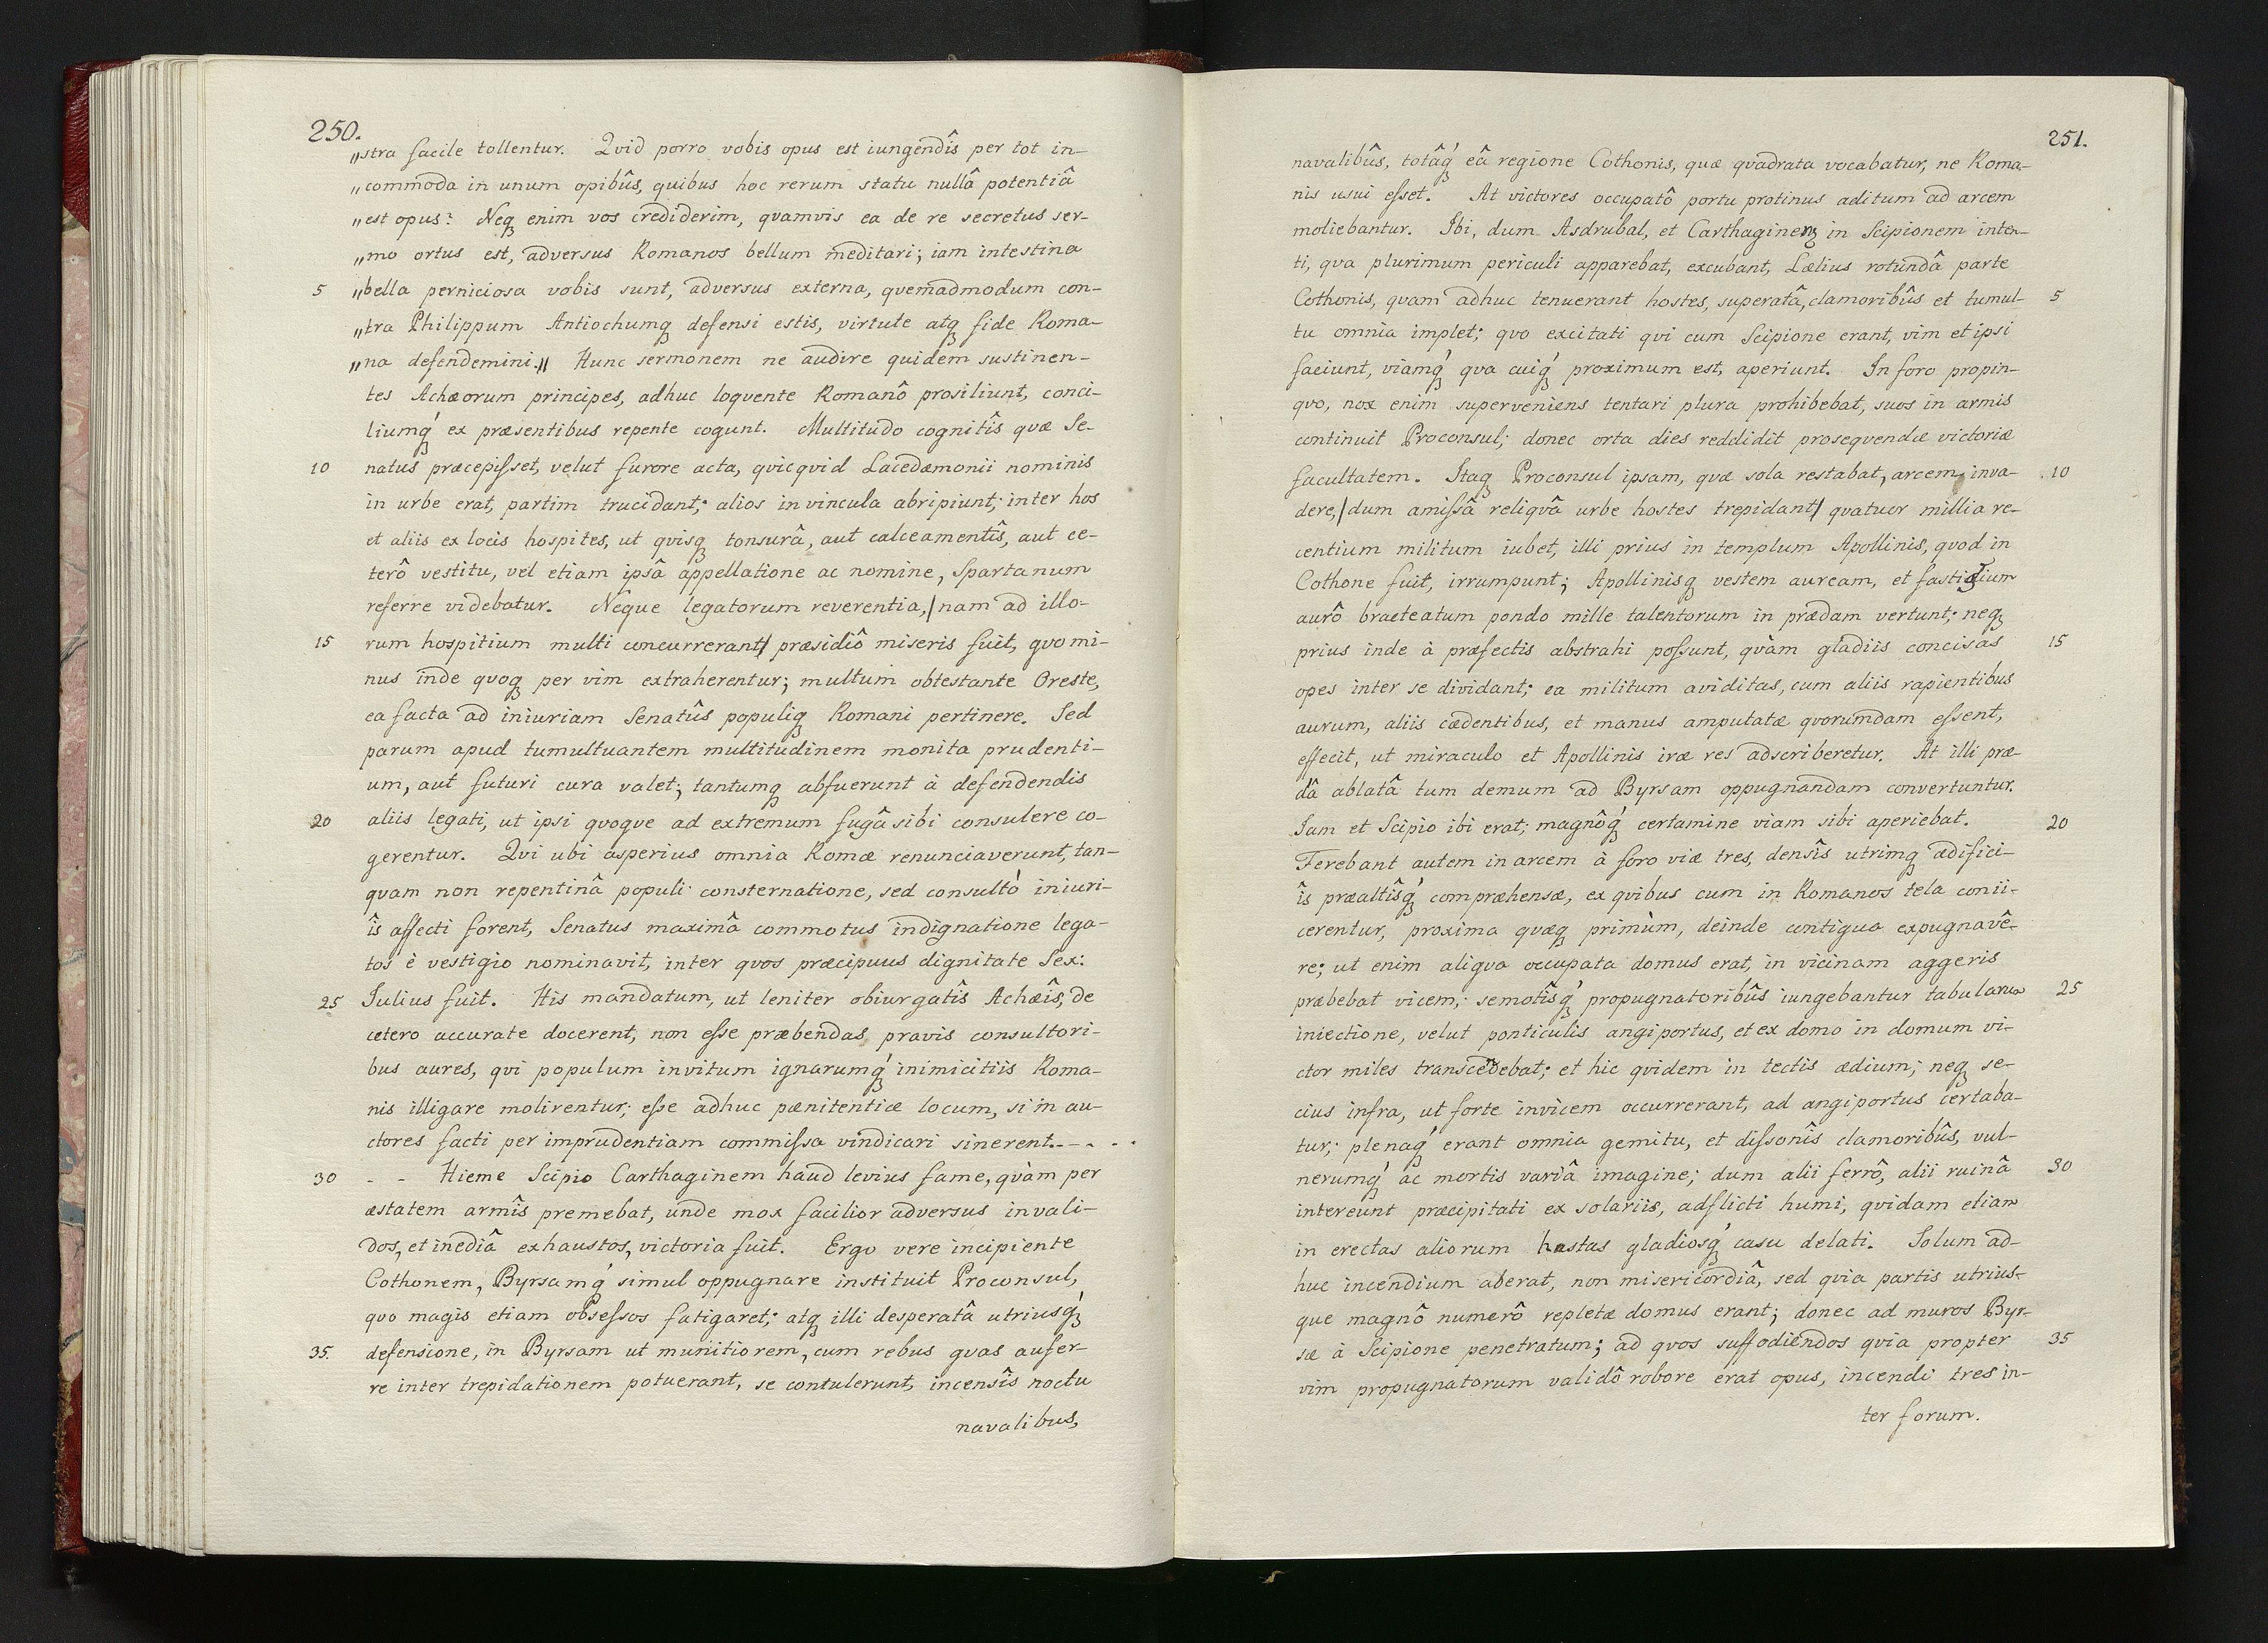 250.
„stra facile tollentur. Qvid porro vobis opus est iungendîs per tot in-
„commoda in unum opibûs, quibus hoc rerum statu nullâ potentiâ
„est opus? Neq enim vos crediderim, qvamvis ea de re secretus ser-
„mo ortus est, adversus Romanos bellum meditari; iam intestina
5 „bella perniciosa vobis sunt, adversus externa, qvemadmodum con-
„tra Philippum Antiochumq defensi estis, virtute atq fide Roma-
„na defendemini.„ Hunc sermonem ne audire quidem sustinen-
tes Achæorum principes, adhuc loqvente Romanô prosiliunt, conci-
liumq́ ex præsentibus repente cogunt. Multitudo cognitîs qvæ Se-
10 natus præcepisset, velut furore acta, qvicqvid Lacedæmonii nominis
in urbe erat, partim trucidant; alios in vincula abripiunt; inter hos
et aliis ex locis hospites, ut qvisq tonsurâ, aut calceamentîs, aut ce-
terô vestitu, vel etiam ipsâ appellatione ac nomine, Spartanum
referre videbatur. Neque legatorum reverentia, /nam ad illo-
15 rum hospitium multi concurrerant/ præsidiô miseris fuit, qvo mi-
nus inde qvoq per vim extraherentur; multum obtestante Oreste,
ea facta ad iniuriam Senatûs populiq Romani pertinere. Sed
parum apud tumultuantem multitudinem monita prudenti-
um, aut futuri cura valet; tantumq abfuerunt à defendendis
20 aliis legati, ut ipsi qvoqve ad extremum fugâ sibi consulere co-
gerentur. Qvi ubi asperius omnia Romæ renunciaverunt, tan-
qvam non repentinâ populi consternatione, sed consultó iniuri-
îs affecti forent, Senatus maximâ commotus indignatione lega-
tos è vestigio nominavit, inter qvos præcipuus dignitate Sex:
25 Iulius fuit. His mandatum, ut leniter obiurgatîs Achæîs, de
cetero accurate docerent, non esse præbendas pravis consultori-
bus aures, qvi populum invitum ignarumq́ inimicitiis Roma-
nis illigare molirentur; esse adhuc pænitentiæ locum, si in au-
ctores facti per imprudentiam commissa vindicari sinerent. - - . .
30 - - Hieme Scipio Carthaginem haud levius fame, qvàm per
æstatem armîs premebat, unde mox facilior adversus invali-
dos, et inediâ exhaustos, victoria fuit. Ergo vere incipiente
Cothonem, Byrsamq́ simul oppugnare instituit Proconsul,
qvo magis etiam obsessos fatigaret; atq illi desperatâ utriusq́
35. defensione, in Byrsam ut munitiorem, cum rebus qvas aufer-
re inter trepidationem potuerant, se contulerunt, incensîs noctu
navalibus,
251.
navalibûs, totâq́ eâ regione Cothonis, quæ qvadrata vocabatur, ne Roma-
nis usui esset. At victores occupatô portu protinus aditum ad arcem
moliebantur. Ibi, dum Asdrubal, et Carthaginenꝫ in Scipionem inten-
ti, qva plurimum periculi apparebat, excubant, Lælius rotundâ parte
Cothonis, qvam adhuc tenuerant hostes, superatâ, clamoribûs et tumul- 5
tu omnia implet; qvo excitati qvi cum Scipione erant, vim et ipsi
faciunt, viamq́ qva cuiq́ proximum est, aperiunt. In foro propin-
qvo, nox enim superveniens tentari plura prohibebat, suos in armis
continuit Proconsul; donec orta dies reddidit proseqvendæ victoriæ
facultatem. Itaq Proconsul ipsam, qvæ sola restabat, arcem inva- 10
dere, /dum amissâ reliqvâ urbe hostes trepidant/ qvatuor millia re-
centium militum iubet, illi prius in templum Apollinis, qvod in
Cothone fuit, irrumpunt; Apollinisq vestem auream, et fastigium
aurô bracteatum pondo mille talentorum in prædam vertunt; neq
prius inde à præfectis abstrahi possunt, qvàm gladiis concisas 15
opes inter se dividant; ea militum aviditas, cum aliis rapientibus
aurum, aliis cædentibus, et manus amputatæ qvorumdam essent,
effecit, ut miraculo et Apollinis iræ res adscriberetur. At illi præ-
dâ ablatâ tum demum ad Byrsam oppugnandam convertuntur.
Iam et Scipio ibi erat; magnôq́ certamine viam sibi aperiebat. 20
Ferebant autem in arcem à foro viæ tres, densîs utrimq ædifici-
îs præaltîsq́ compræhensæ, ex qvibus cum in Romanos tela conii-
cerentur, proxima qvæq primùm, deinde contigua expugnavê-
re; ut enim aliqva occupata domus erat, in vicinam aggeris
præbebat vicem; semotîsq́ propugnatoribûs iungebantur tabularum 25
iniectione, velut ponticulis angiportus, et ex domo in domum vi-
ctor miles transcedebat; et hic qvidem in tectis ædium; neq se-
cius infra, ut forte invicem occurrerant, ad angiportus certaba-
tur; plenaq́ erant omnia gemitu, et dissonîs clamoribûs, vul-
nerumq́ ac mortis variâ imagine; dum alii ferrô, alii ruinâ 30
intereunt præcipitati ex solariis, adflicti humi, qvidam etiam
in erectas aliorum hastas gladiosq́ casu delati. Solum ad-
huc incendium aberat, non misericordiâ, sed qvia partis utrius-
que magnô numerô repletæ domus erant; donec ad muros Byr-
sæ à Scipione penetratum; ad qvos suffodiendos qvia propter 35
vim propugnatorum validô robore erat opus, incendi tres in-
ter forum.